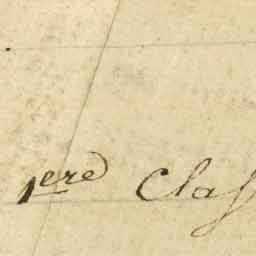 1ere Clas